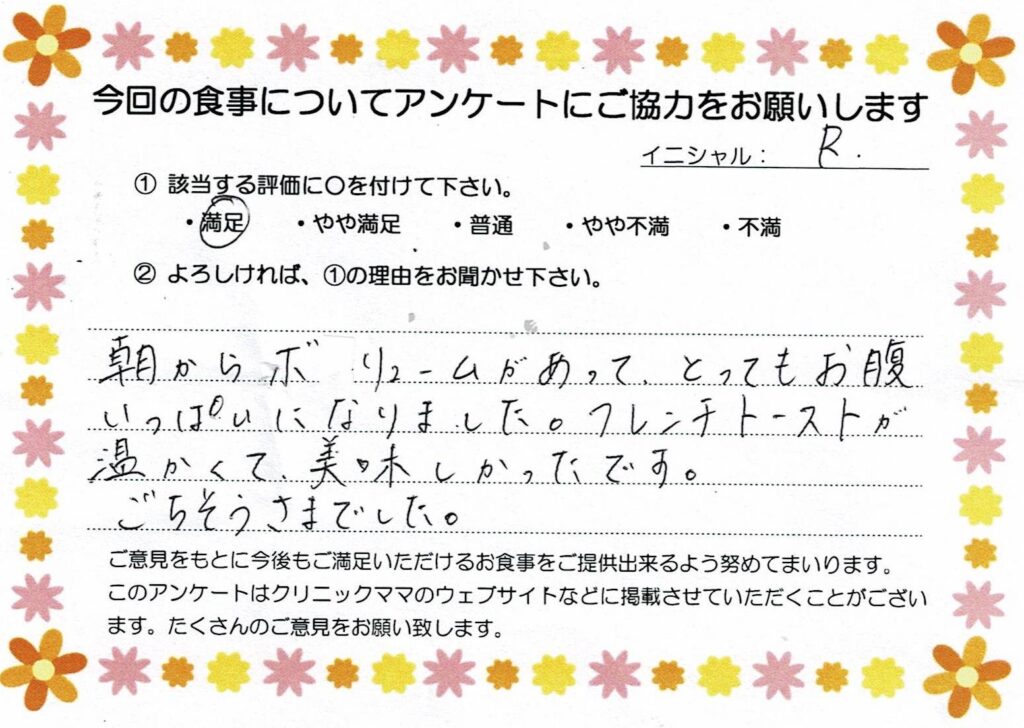 今回の食事についてアンケートにご協力をお願いします
イニシャル： R.
① 該当する評価に〇を付けて下さい。
・満足 ・やや満足 ・普通 ・やや不満 ・不満
② よろしければ、①の理由をお聞かせ下さい。
朝からボリュームがあって、とってもお腹
いっぱいになりました。フレンチトーストが
温かくて、美味しかったです。
ごちそうさまでした。
ご意見をもとに今後もご満足いただけるお食事をご提供出来るよう努めてまいります。
このアンケートはクリニックママのウェブサイトなどに掲載させていただくことがござい
ます。たくさんのご意見をお願い致します。